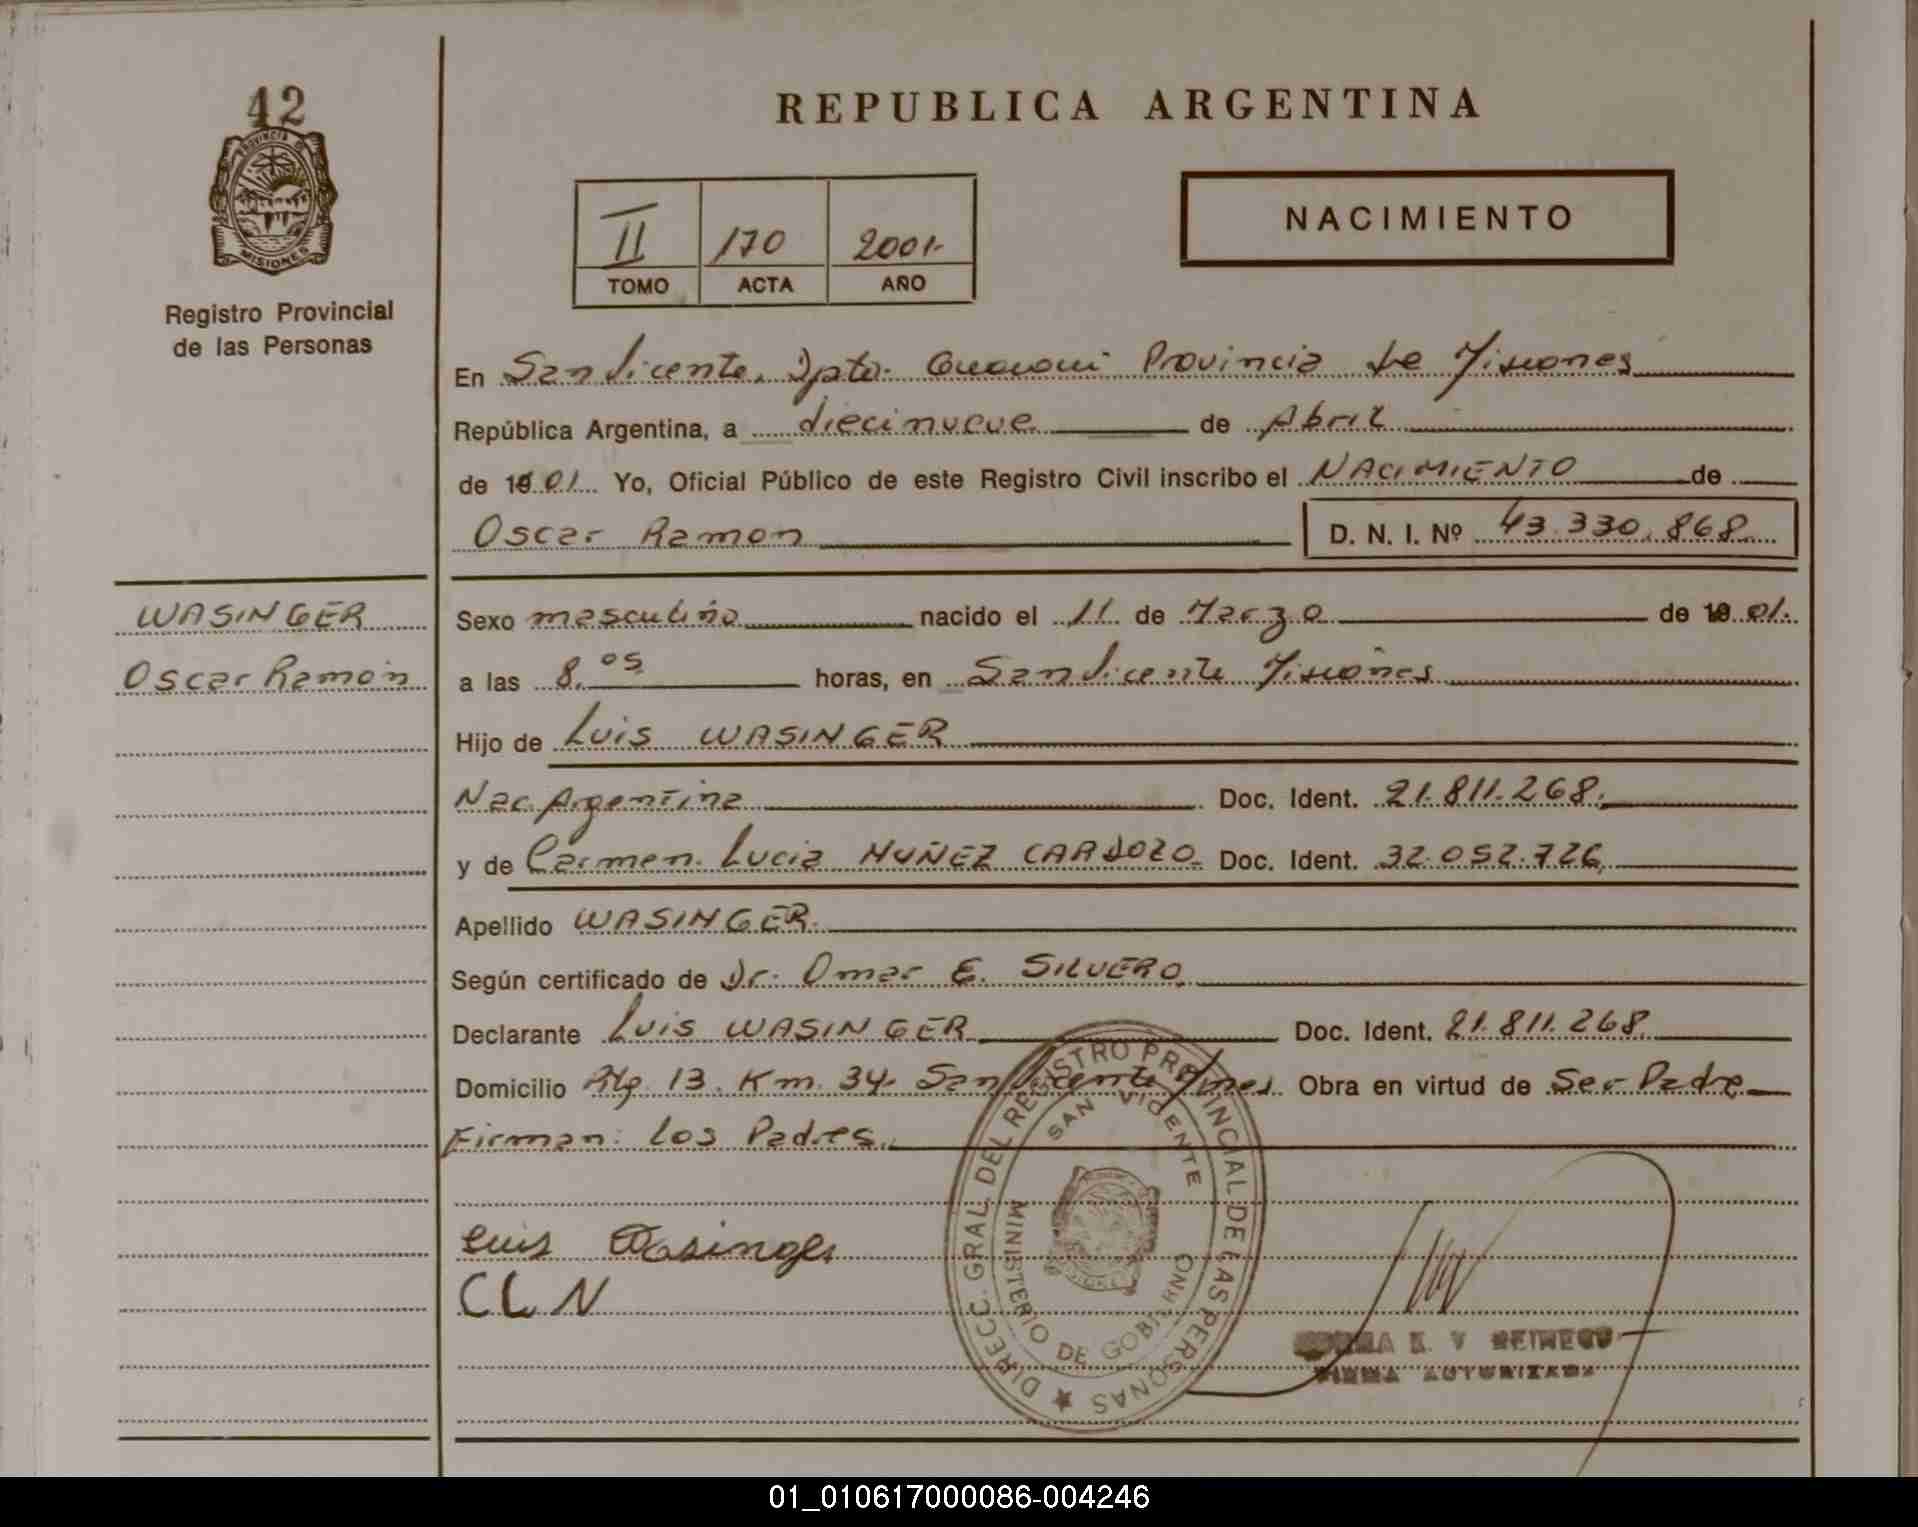 42
PROVINCIA DE
MISIONES
Registro Provincial
de las Personas
REPUBLICA ARGENTINA
II 170 2001.
TOMO ACTA AÑO
NACIMIENTO
En San Vicente, Dpto. Guarani Provincia de Misiones
República Argentina, a diecinueve de Abril
de 01 Yo, Oficial Público de este Registro Civil inscribo el NACIMIENTO de
Oscar Ramon D. N. I. Nº 43.330.868.
WASINGER
Oscar Ramón
Sexo masculino nacido el 11 de Marzo de 01.
a las 8.05 horas, en San Vicente Misiones
Hijo de Luis WASINGER
Nac. Argentina Doc. Ident. 21.811.268.
y de Carmen Lucia NUÑEZ CARDOZO Doc. Ident. 32.052.726
Apellido WASINGER.
Según certificado de Dr. Omar E. SILVERO
Declarante Luis WASINGER Doc. Ident. 21.811.268.
Domicilio Plg. 13. Km. 34. San Vicente Mnes. Obra en virtud de Ser Padre
Firman: los Padres.
Luis Wasinger
CLN
DIRECC. GRAL. DEL REGISTRO PROVINCIAL DE LAS PERSONAS
SAN VICENTE
MINISTERIO DE GOBIERNO
FIRMA AUTORIZADA
01_010617000086-004246